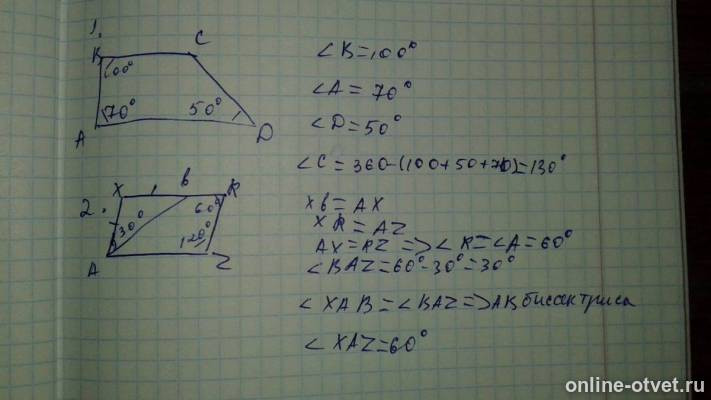 1.
B
C
100°
70°
50°
A
D
∠B=100°
∠A=70°
∠D=50°
∠C=360-(100+50+70)=130°
2.
X
B
R
30°
60°
120°
A
Z
XB=AX
XR=AZ
AX=RZ => ∠R=∠A=60°
∠BAZ=60°-30°=30°
∠XAB=∠BAZ=>AB биссектриса
∠XAZ=60°
online-otvet.ru